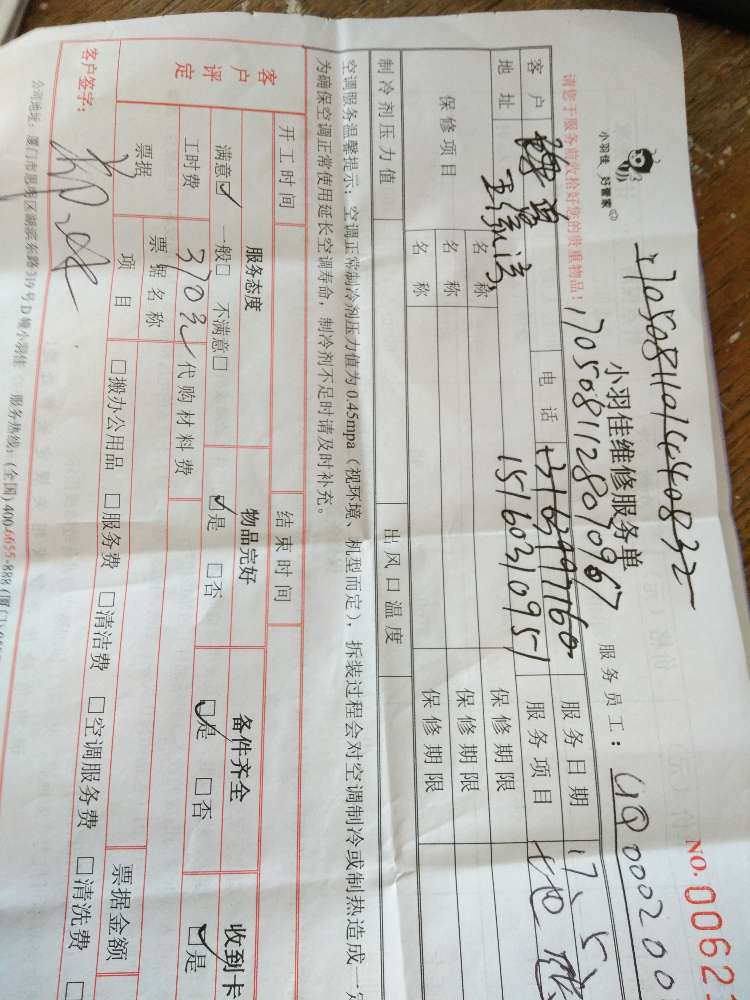 小羽佳 好管家
NO.0062
小羽佳维修服务单
服务员工:
170508112801096
请您于服务前收拾好您的贵重物品!
客户
电话
服务日期
17、5、
地址
15160310951
服务项目
保修项目
名称
保修期限
名称
保修期限
名称
保修期限
制冷剂压力值
出风口温度
空调服务温馨提示:空调正常制冷剂压力值为0.45mpa(视环境、机型而定),拆装过程会对空调制冷或制热造成一定
为确保空调正常使用延长空调寿命,制冷剂不足时请及时补充。
开工时间
结束时间
客户评定
服务态度
物品完好
备件齐全
收到卡
满意☑ 一般□ 不满意□
☑是 □否
☑是 □否
☑是
工时费
370元
代购材料费
票据
票据名称
票据金额
项目
□搬办公用品 □服务费 □清洁费 □空调服务费 □清洗费 □
客户签字:
公司地址:厦门市思明区湖滨东路319号D幢小羽佳
服务热线:(全国)400-6655-888(厦门)